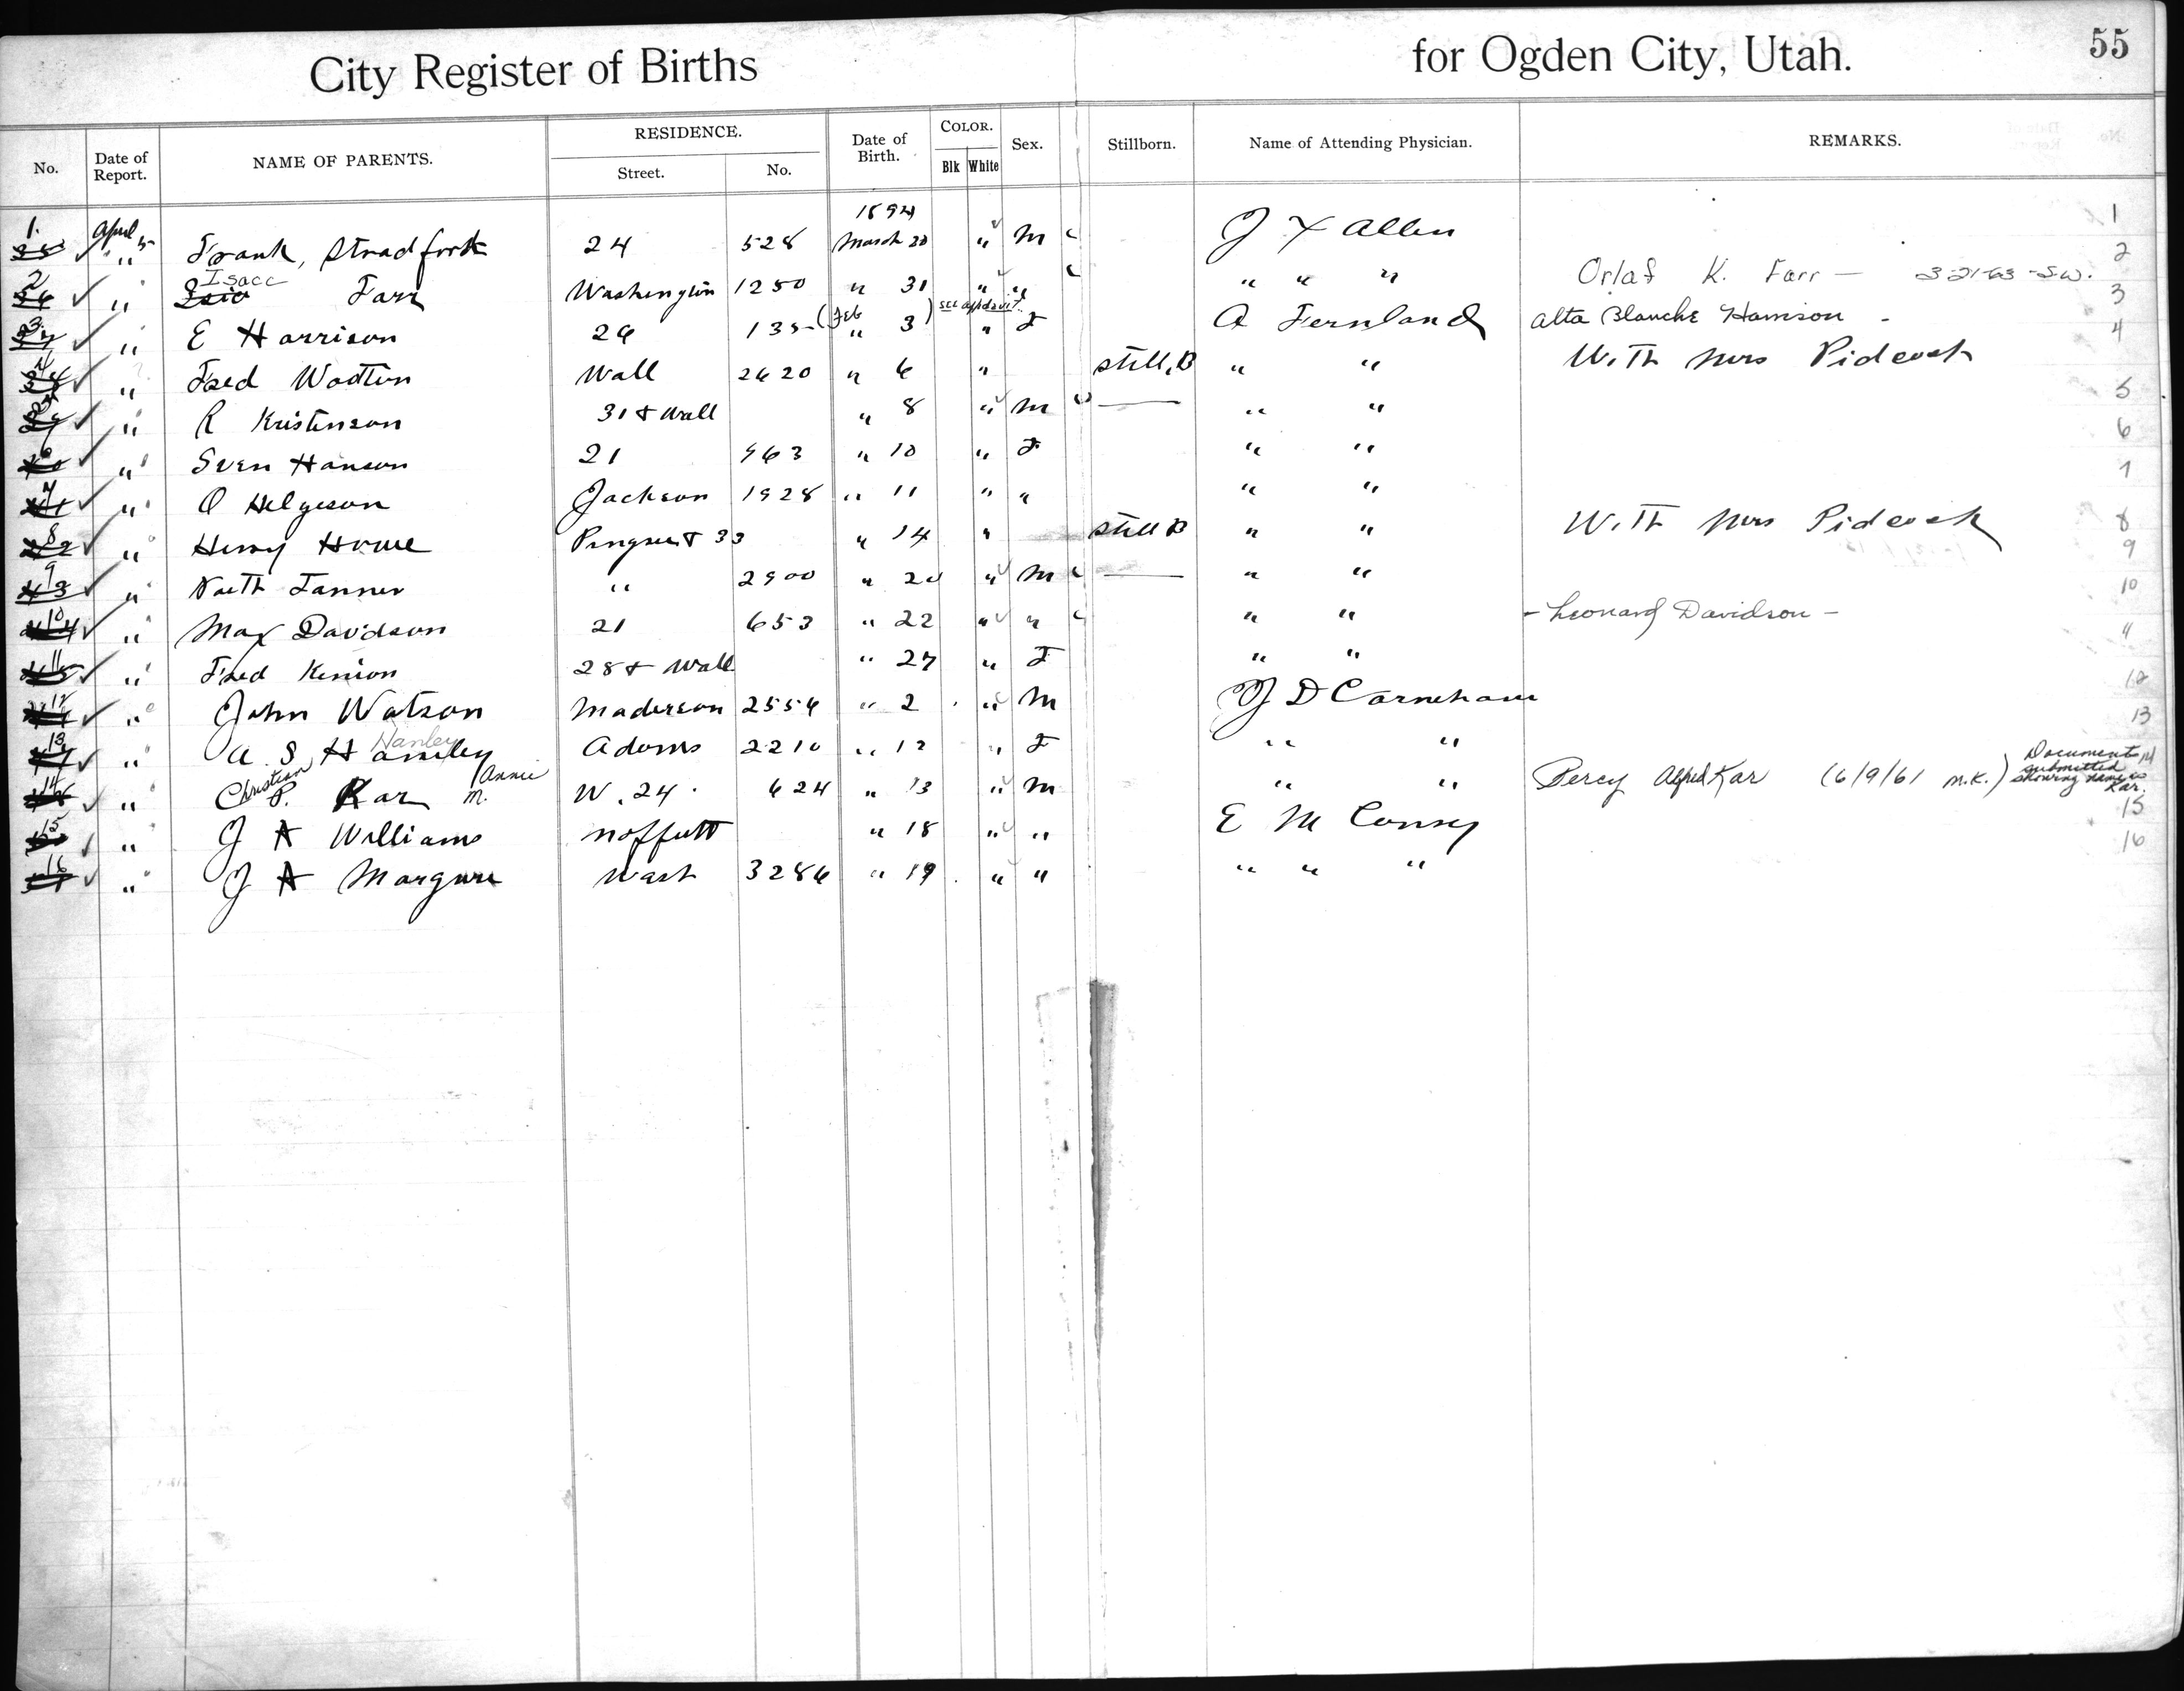 City Register of Births for Ogden City, Utah. 55
No. Date of Report. NAME OF PARENTS. RESIDENCE. Street. No. Date of Birth. COLOR. Blk White Sex. Stillborn. Name of Attending Physician. REMARKS.
1894
1. April 5 Frank, Stradford 24 528 March 20 " M J X Allen 1
2 " Isacc Farr Washington 1250 " 31 " " " " " Orlaf K. Farr — 3-21-63 -S.W. 2
" E Harrison 26 135 (Feb " 3) see affidavit " F A Fernland Alta Blanche Harrison - 3
" Fred Wootton Wall 2620 " 6 " Still, B " " With Mrs Pidcock 4
" R Kristenson 31 & Wall " 8 " M — " " 5
6 " Sven Hanson 21 963 " 10 " F " " 6
7 " O Helgeson Jackson 1928 " 11 " " " " 7
8 " Henry Howe Pingree & 33 " 14 " Still B " " With Mrs Pidcock 8
9 " Tanner " 2900 " 20 " M — " " 9
10 " Max Davidson 21 653 " 22 " " " " - Leonard Davidson - 10
11 " Fred Kenion 28 & Wall " 27 " F " " 11
12 " John Watson Maderson 2556 " 2 " M J D Carnahan 12
13 " A. S Hamley Hanley Adams 2210 " 12 " F " " 13
14 " Christian P. Kar Annie M. W. 24 624 " 13 " M " " Percy Alfred Kar (6/9/61 M.K.) Documents submitted showing name as Kar. 14
15 " J A Williams Moffutt " 18 " " E M Conroy 15
16 " J A Margure Wash 3286 " 19 " " " " " 16